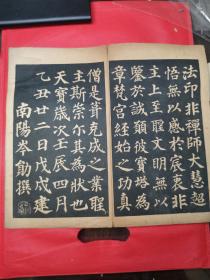 法印非禪師大慧超
悟無以感於宸衷非
主上至聖文明無以
鑒於誠願彼寶塔為
章梵宮經始之功真
僧是葺克成之業聖
主斯崇尔其為狀也
天寶歲次壬辰四月
乙丑廿二日戊戌建
南陽岑勛撰